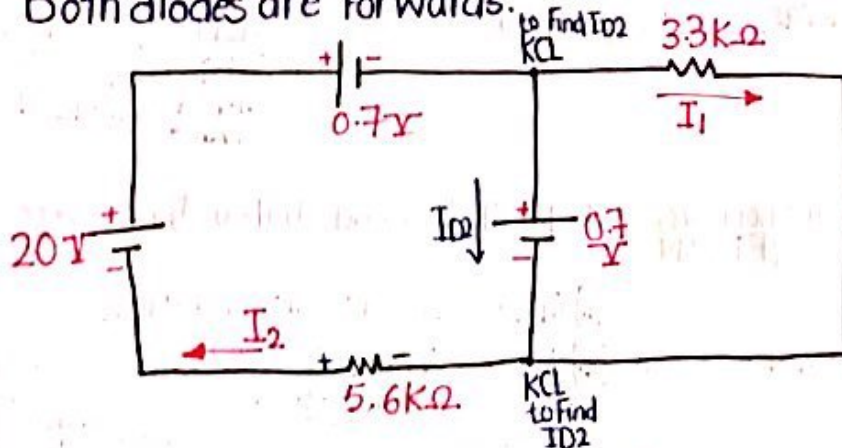 Both diodes are forwards.
to Find ID2
KCL
3.3KΩ
+ -
0.7V
I1
+
20V
-
ID2
+
0.7
V
-
I2
+ -
5.6KΩ
KCL
to Find
ID2